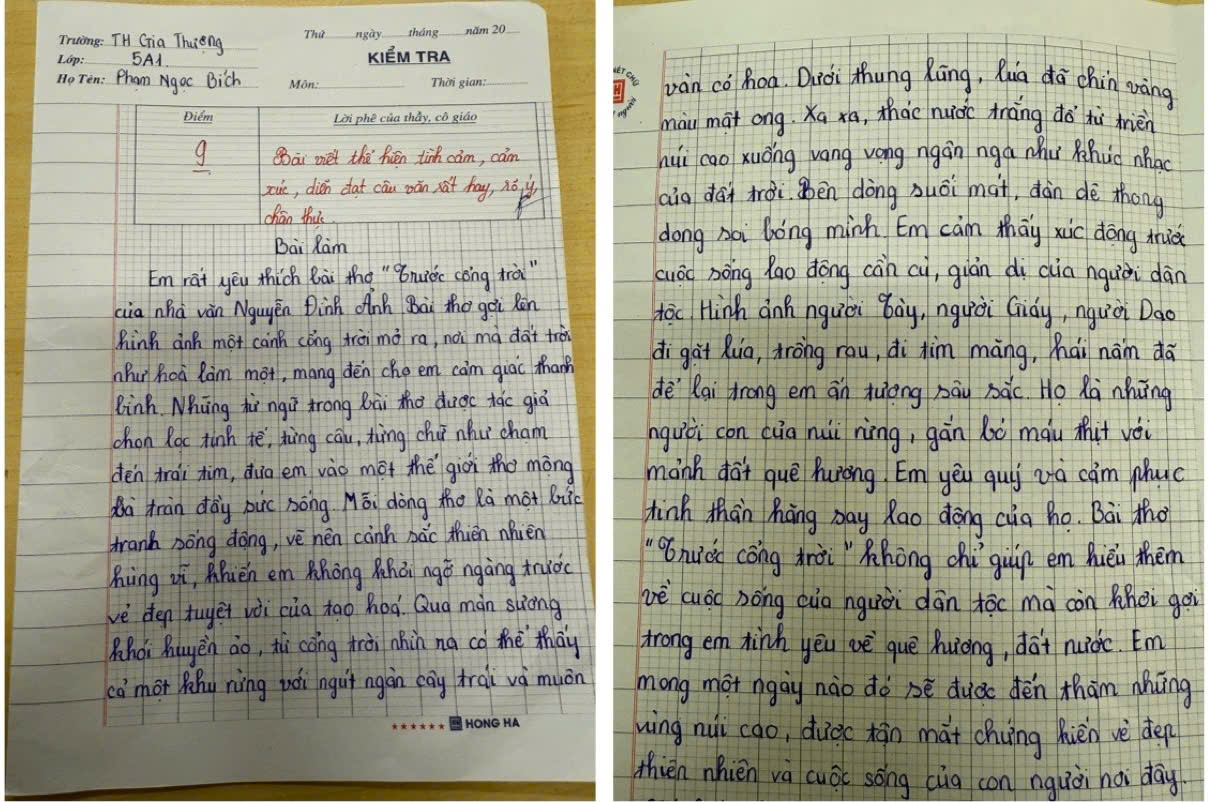 Trường: TH Gia Thượng
Thứ ngày tháng năm 20
Lớp: 5A1
KIỂM TRA
Họ Tên: Phạm Ngọc Bích
Môn: Thời gian:
Điểm
Lời phê của thầy, cô giáo
9
Bài viết thể hiện tình cảm, cảm
xúc, diễn đạt câu văn rất hay, rõ ý,
chân thực.
Bài làm
Em rất yêu thích bài thơ "Trước cổng trời"
của nhà văn Nguyễn Đình Ảnh. Bài thơ gợi lên
hình ảnh một cánh cổng trời mở ra, nơi mà đất trời
như hoà làm một, mang đến cho em cảm giác thanh
bình. Những từ ngữ trong bài thơ được tác giả
chọn lọc tinh tế, từng câu, từng chữ như chạm
đến trái tim, đưa em vào một thế giới thơ mộng
và tràn đầy sức sống. Mỗi dòng thơ là một bức
tranh sống động, vẽ nên cảnh sắc thiên nhiên
hùng vĩ, khiến em không khỏi ngỡ ngàng trước
vẻ đẹp tuyệt vời của tạo hoá. Qua màn sương
khói huyền ảo, từ cổng trời nhìn na có thể thấy
cả một khu rừng với ngút ngàn cây trái và muôn
HONG HA
vàn cỏ hoa. Dưới thung lũng, lúa đã chín vàng
màu mật ong. Xa xa, thác nước trắng đổ từ triền
núi cao xuống vang vọng ngân nga như khúc nhạc
của đất trời. Bên dòng suối mát, đàn dê thong
dong soi bóng mình. Em cảm thấy xúc động trước
cuộc sống lao động cần cù, giản dị của người dân
tộc. Hình ảnh người Tày, người Giáy, người Dao
đi gặt lúa, trồng rau, đi tìm măng, hái nấm đã
để lại trong em ấn tượng sâu sắc. Họ là những
người con của núi rừng, gắn bó máu thịt với
mảnh đất quê hương. Em yêu quý và cảm phục
tinh thần hăng say lao động của họ. Bài thơ
"Trước cổng trời" không chỉ giúp em hiểu thêm
về cuộc sống của người dân tộc mà còn khơi gợi
trong em tình yêu về quê hương, đất nước. Em
mong một ngày nào đó sẽ được đến thăm những
vùng núi cao, được tận mắt chứng kiến vẻ đẹp
thiên nhiên và cuộc sống của con người nơi đây.